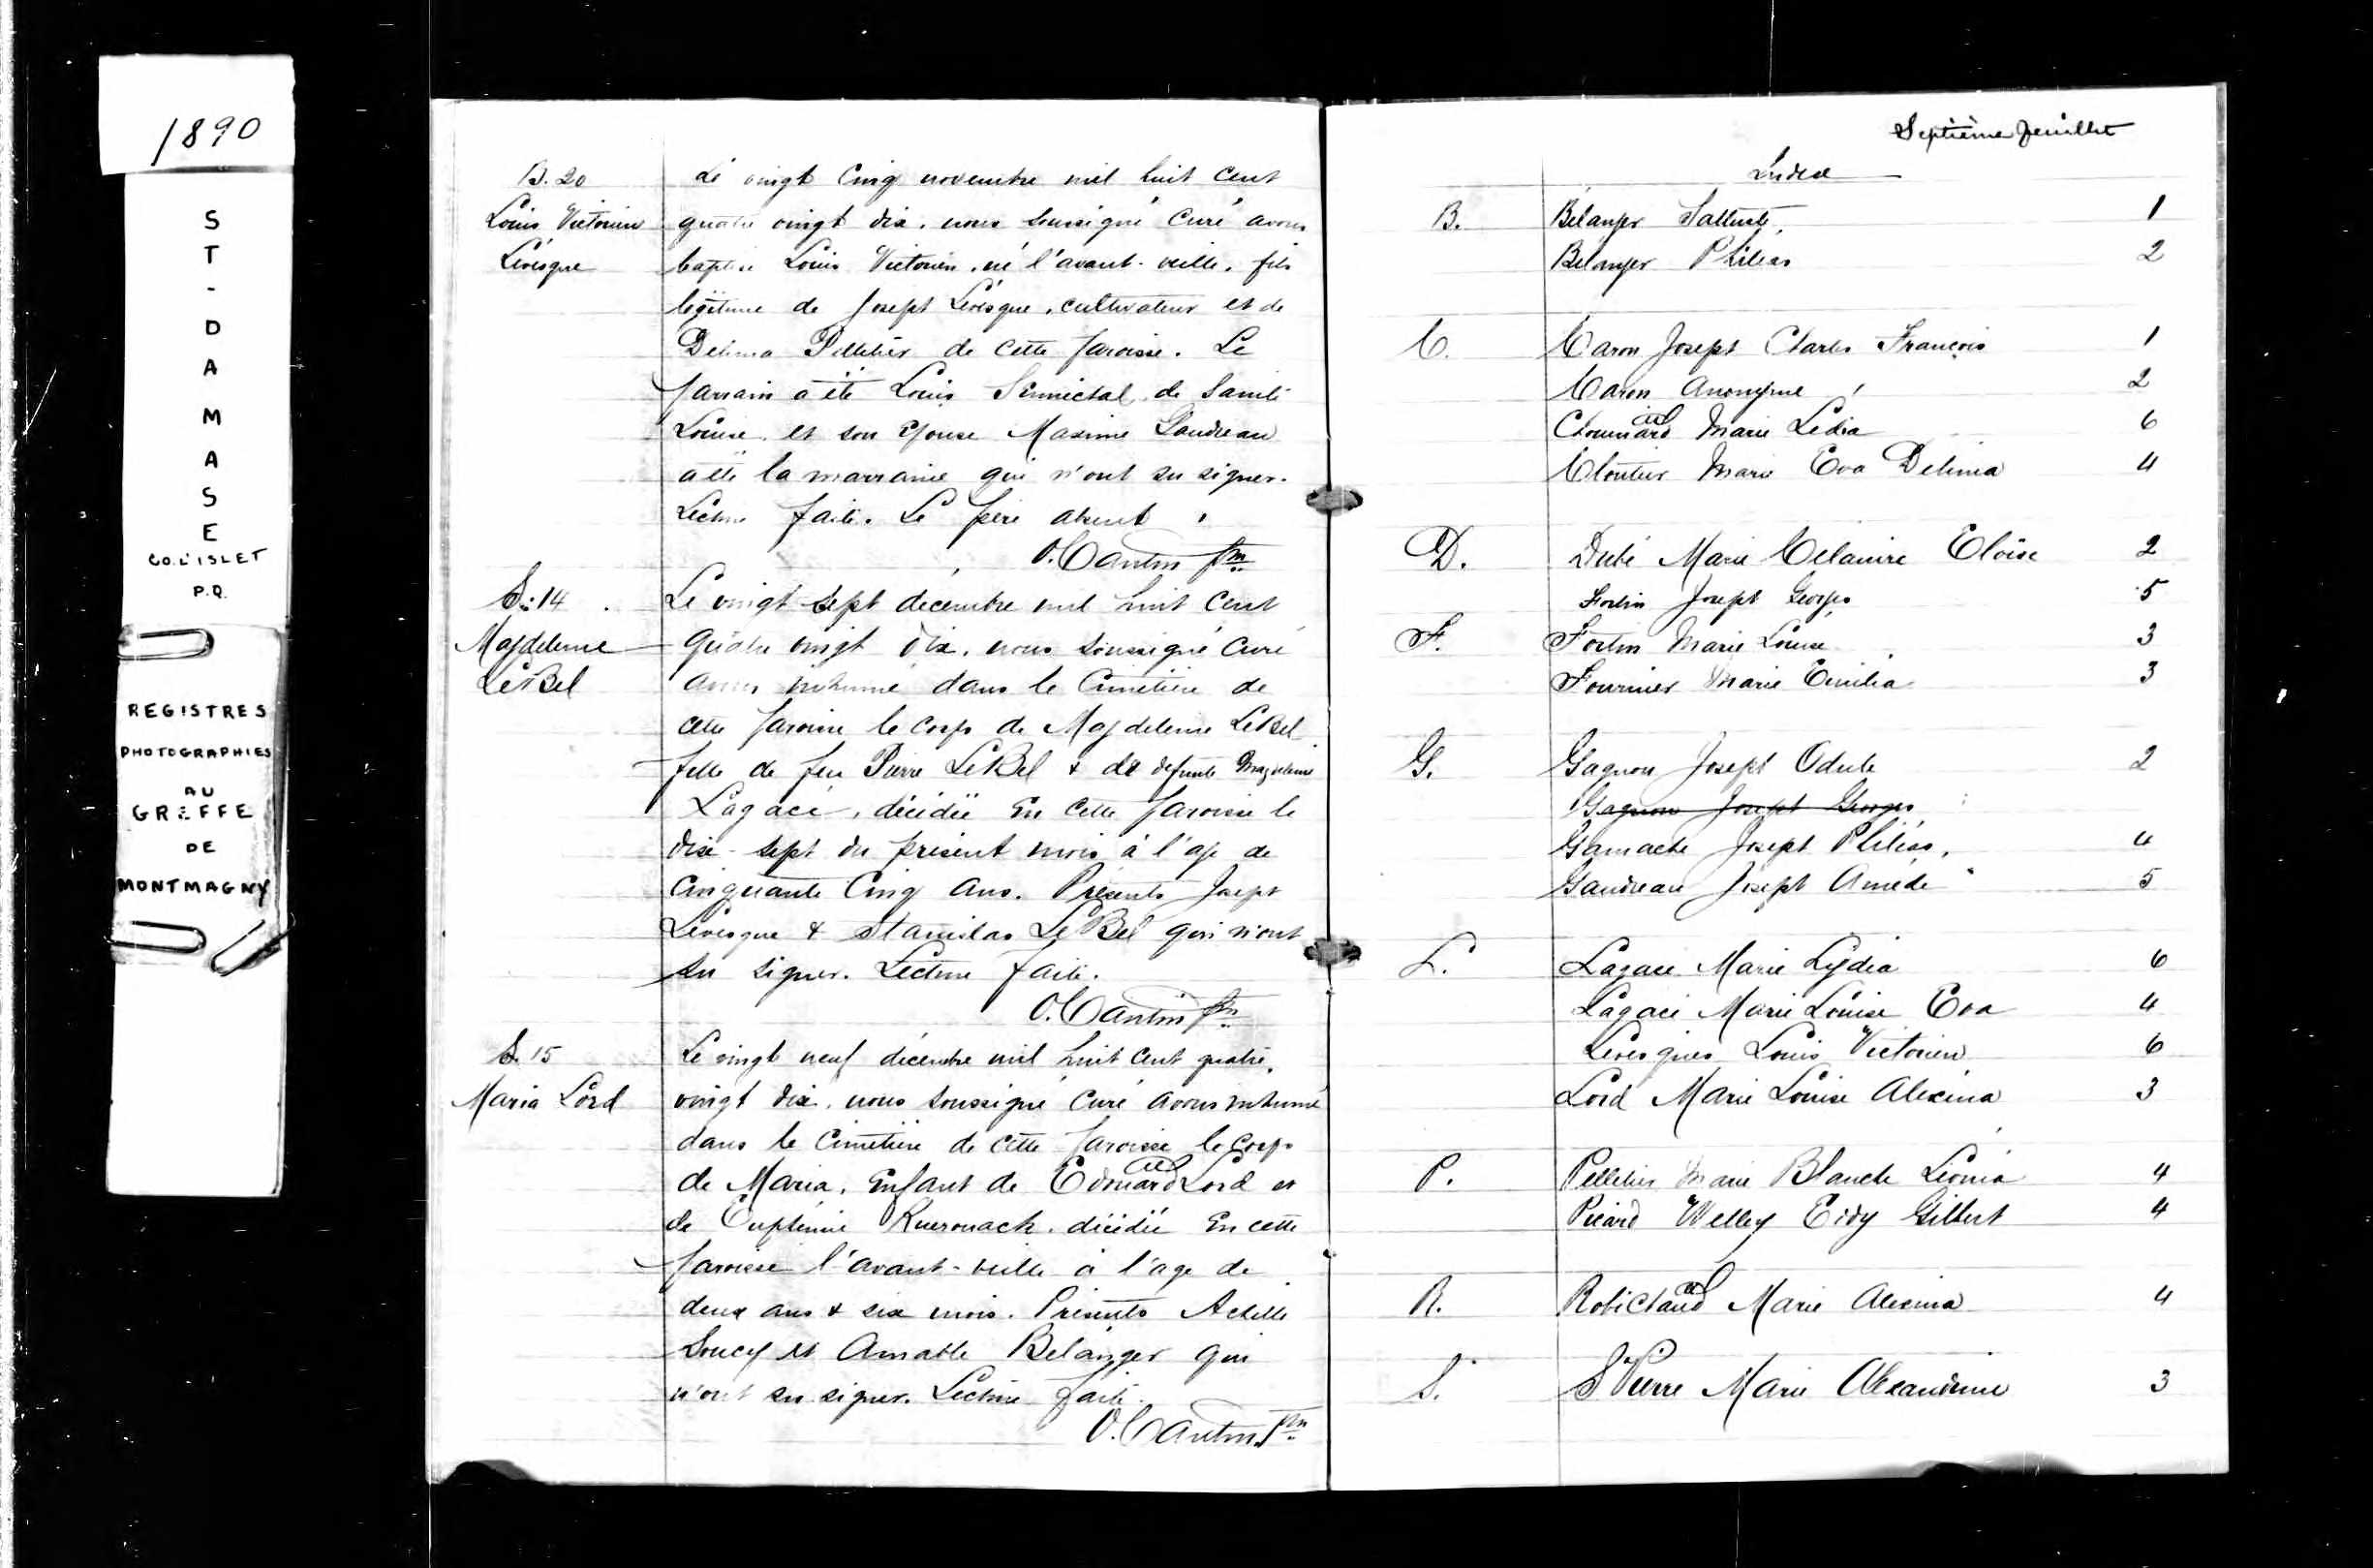 1890
ST-DAMASE
CO. L'ISLET
P.Q.
REGISTRES
PHOTOGRAPHIES
AU
GREFFE
DE
MONTMAGNY
B. 20
Louis Victorien
Lévesque
Le vingt cinq novembre mil huit cent
quatre vingt dix, nous soussigné curé avons
baptisé Louis Victorien, né l'avant-veille, fils
légitime de Joseph Lévesque, cultivateur et de
Delima Pelletier de cette paroisse. Le
parrain a été Louis Sénéchal de Sainte
Louise, et son épouse Maxime Gaudreau
a été la marraine qui n'ont su signer.
Lecture faite. Le père absent.
O. Cantin Ptre
S. 14
Magdeleine
LeBel
Le vingt-sept décembre mil huit cent
quatre vingt dix, nous soussigné curé
avons inhumé dans le cimetière de
cette paroisse le corps de Magdeleine LeBel
fille de feu Pierre LeBel & de défunte Magdeleine
Lagacé, décédée en cette paroisse le
dix-sept du présent mois à l'age de
cinquante cinq ans. Présents Joseph
Lévesque & Stanislas LeBel qui n'ont
su signer. Lecture faite.
O. Cantin Ptre
S. 15
Maria Lord
Le vingt neuf décembre mil huit cent quatre
vingt dix, nous soussigné curé avons inhumé
dans le cimetière de cette paroisse le corps
de Maria, enfant de Edouard Lord et
de Euphémie Kuerouack, décédée en cette
paroisse l'avant-veille à l'age de
deux ans & six mois. Présents Achille
Soucy et Amable Bélanger qui
n'ont su signer. Lecture faite.
O. Cantin Ptre
Septième feuillet
Index
B. Bélanger Salluste 1
Bélanger Philéas 2
C. Caron Joseph Charles François 1
Caron Anonyme 2
Chouinard Marie Lédia 6
Cloutier Marie Eva Delima 4
D. Dubé Marie Célanire Eloïse 2
Fortin Joseph Georges 5
F. Fortin Marie Louise 3
Fournier Marie Emilia 3
G. Gagnon Joseph Odule 2
Gagnon Joseph Georges
Gamache Joseph Philéas 4
Gaudreau Joseph Amédé 5
L. Lagacé Marie Lydia 6
Lagacé Marie Louise Eva 4
Levesques Louis Victorien 6
Lord Marie Louise Alexina 3
P. Pelletier Marie Blanche Léonia 4
Picard Welley Eidy Gilbert 4
R. Robichaud Marie Alexina 4
S. St Pierre Marie Alexandrine 3